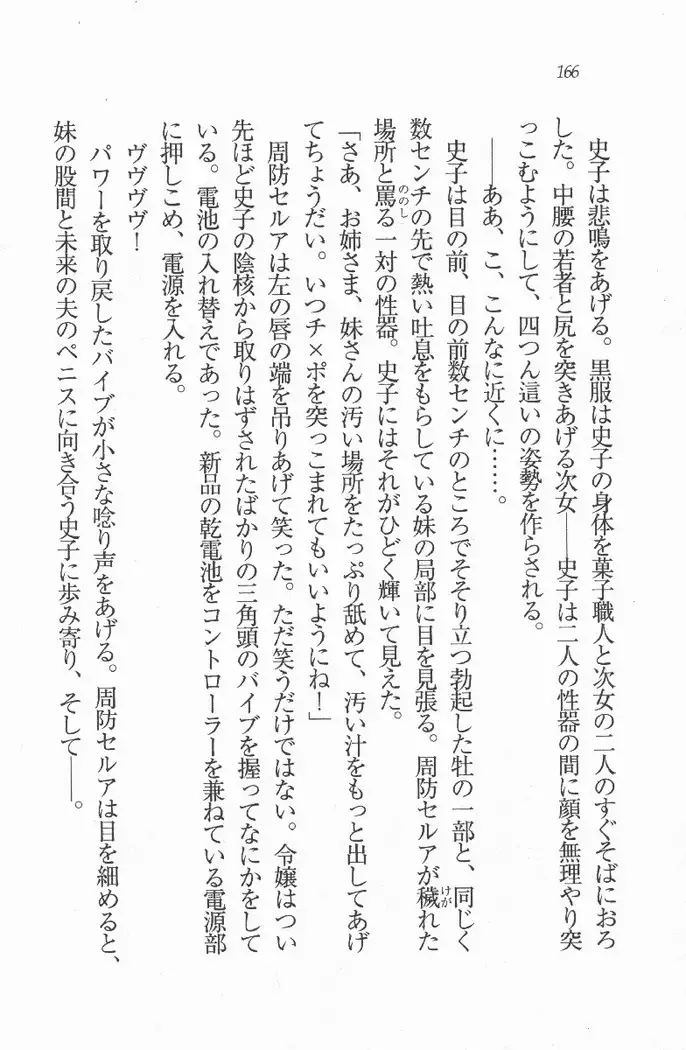 166
史子は悲鳴をあげる。黒服は史子の身体を菓子職人と次女の二人のすぐそばにおろ
した。中腰の若者と尻を突きあげる次女――史子は二人の性器の間に顔を無理やり突
っこむようにして、四つん這いの姿勢を作らされる。
――ああ、こ、こんなに近くに……。
史子は目の前、目の前数センチのところでそそり立つ勃起した牡の一部と、同じく
数センチの先で熱い吐息をもらしている妹の局部に目を見張る。周防セルアが穢れた
場所と罵る一対の性器。史子にはそれがひどく輝いて見えた。
「さあ、お姉さま、妹さんの汚い場所をたっぷり舐めて、汚い汁をもっと出してあげ
てちょうだい。いつチ×ポを突っこまれてもいいようにね！」
周防セルアは左の唇の端を吊りあげて笑った。ただ笑うだけではない。令嬢はつい
先ほど史子の陰核から取りはずされたばかりの三角頭のバイブを握ってなにかをして
いる。電池の入れ替えであった。新品の乾電池をコントローラーを兼ねている電源部
に押しこめ、電源を入れる。
ヴヴヴヴ！
パワーを取り戻したバイブが小さな唸り声をあげる。周防セルアは目を細めると、
妹の股間と未来の夫のペニスに向き合う史子に歩み寄り、そして――。